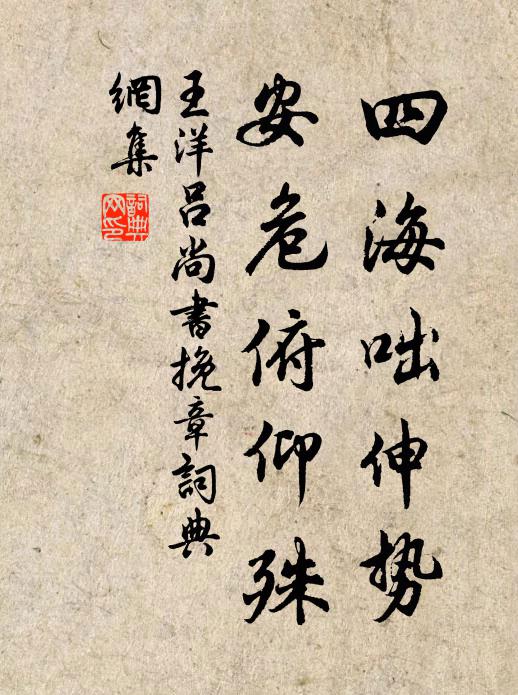 四海咄伸势
安危俯仰殊
王洋吕尚書挽章詞典
網集
詞典
网印